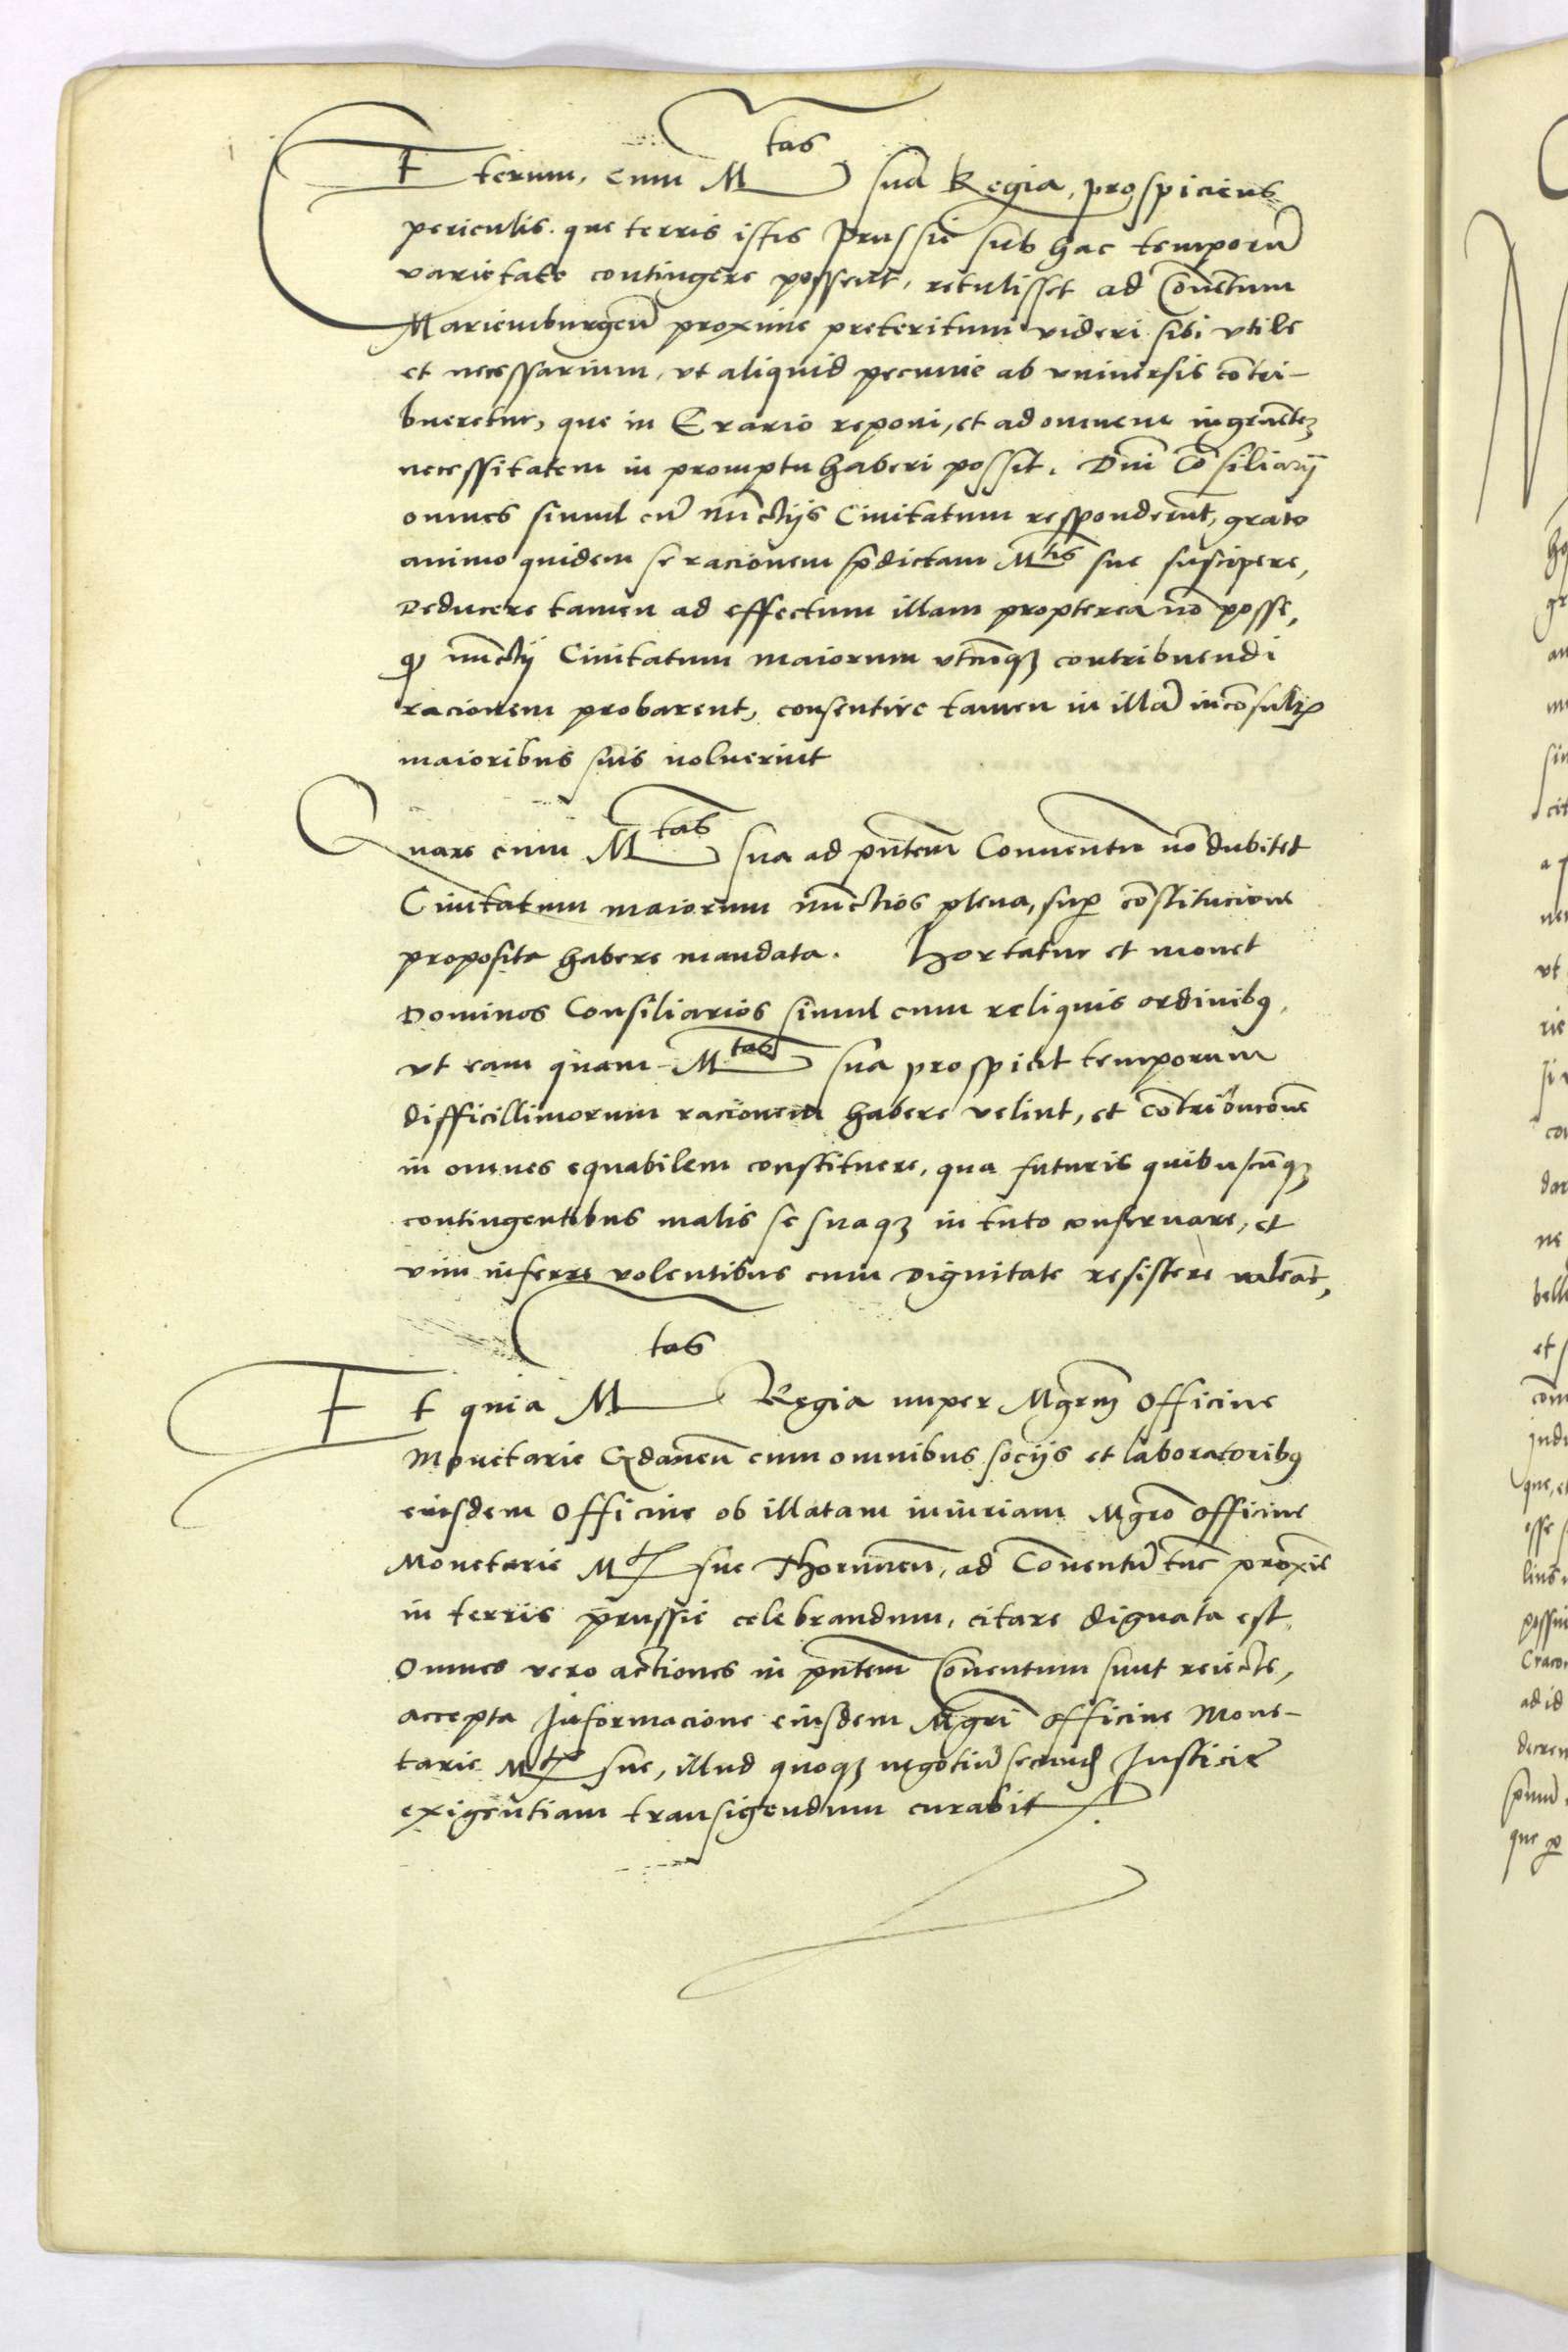 Ceterum, cum Mtas sua Regia, prospiciens
periculis. que terris istis Prussie sub hac temporu͂
varietate contingere possent, retulisset ad Co͂uentum
Mariemburgen͂ proxime preteritum videri sibi vtile
et necessarium, vt aliquid pecunie ab vniuersis co͂tri-
bueretur, que in Erario reponi, et ad omnem ingrue͂tem
necessitatem in promptu haberi possit. Dni͂ Co͂siliarij
omnes simul cu͂ nu͂ctijs Ciuitatum responderu͂t, grato
animo quidem se racionem p͂dictam Mtis sue suscipere,
Deducere tamen ad effectum illam propterea no͂ posse,
q nu͂ctij Ciuitatum maiorum vtcu͂q3 contribuendi
racionem probarent, consentire tamen in illa͂ inco͂sult
maioribus suis noluerint
Quare cum Mtas sua ad pn͂tem Conuentu͂ no͂ dubitet
Ciuitatum maiorum nu͂ctios plena, sup co͂stitucione
proposita habere mandata. Hortatur et monet
Dominos Consiliarios simul cum reliquis ordinib9,
vt eam quam Mtas sua prospicit temporum
difficillimorum racionem habere velint, et co͂tribucione͂
in omnes equabilem constituere, qua futuris quibuscu͂q3
contingentibus malis se suaq3 in tuto conseruare, et
vim inferre volentibus cum Dignitate resistere valea͂t,
Et quia Mtas Regia nuper Mgrm͂ Officine
Monetarie Gdanen͂ cum omnibus socijs et laboratorib9
eiusdem Officine ob illatam iniuriam Mgro͂ Officine
Monetarie Mtis sue Thorunen͂, ad Co͂uentu͂ tu͂c proxi͂e
in terris prussie celebrandum, citare dignata est.
Omnes vero actiones in pn͂tem Co͂uentum sunt reiecte,
accepta Informacione eiusdem Mgri͂ Officine Mone-
tarie Mtis sue, illud quoq3 negotiu͂ secund Iusticie
exigentiam transigendum curabit